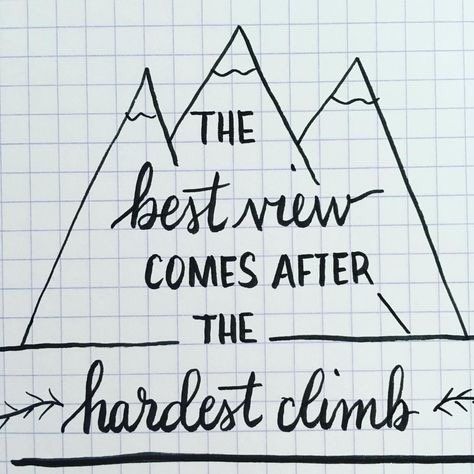 THE
best view
COMES AFTER
THE
hardest climb